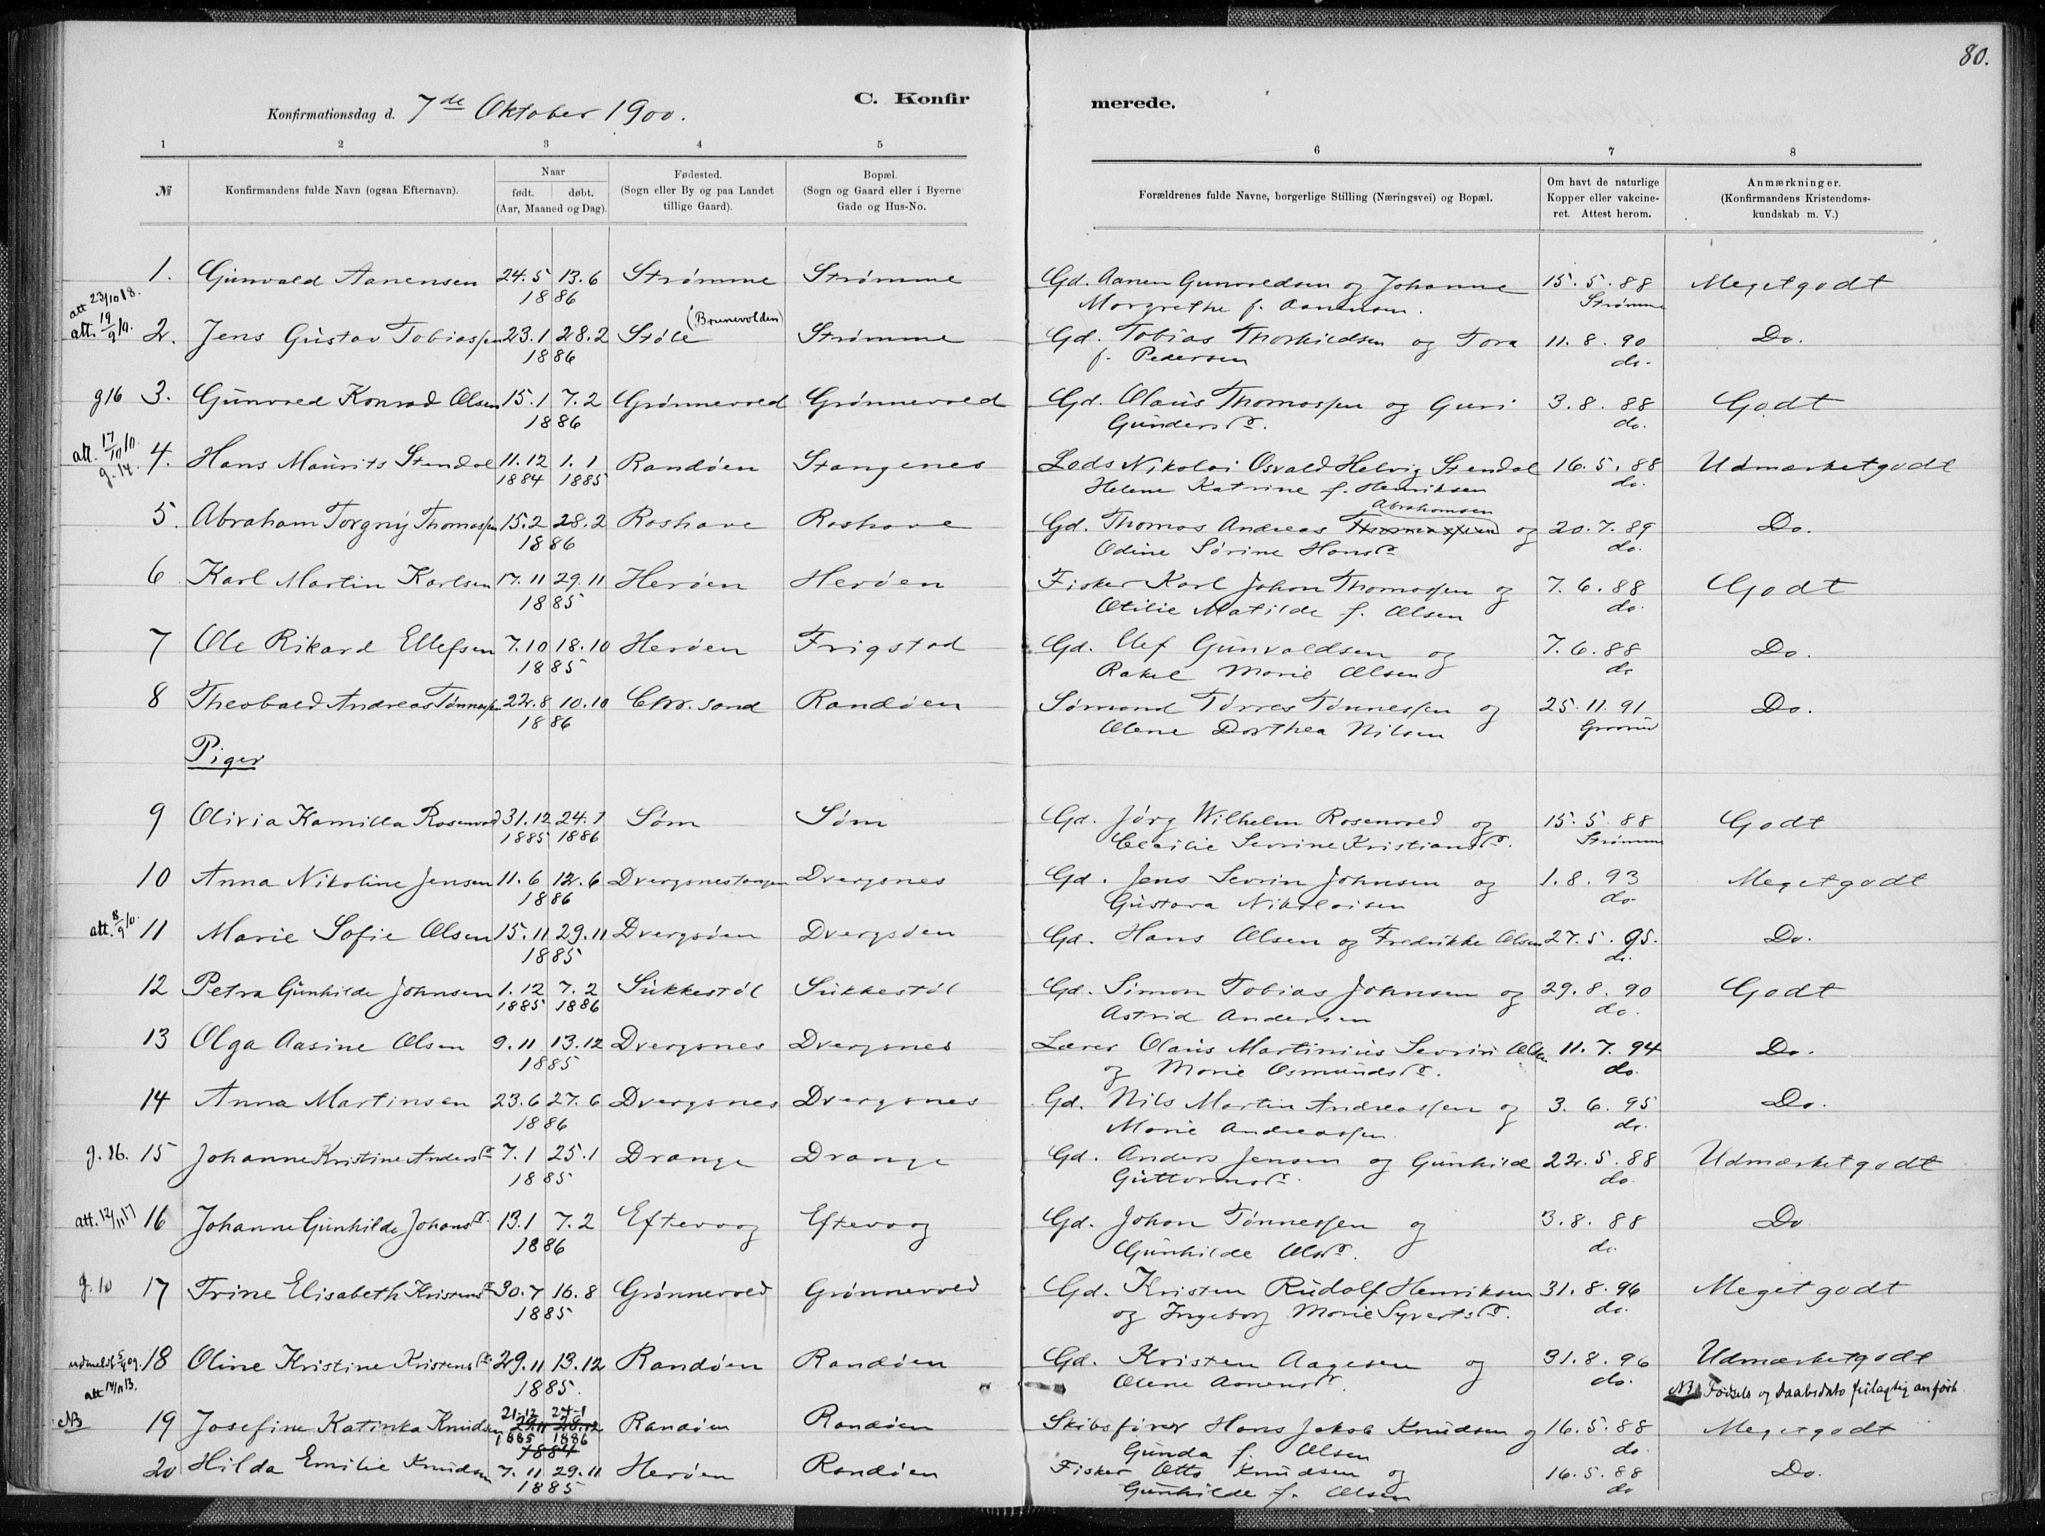 80.
Konfirmationsdag d. 7de Oktober 1900.
C. Konfirmerede.
1 2 3 4 5 6 7 8
№ Konfirmandens fulde Navn (ogsaa Efternavn). Naar født. døbt. (Aar, Maaned og Dag). Fødested. (Sogn eller By og paa Landet tillige Gaard). Bopæl. (Sogn og Gaard eller i Byerne Gade og Hus-No. Forældrenes fulde Navne, borgerlige Stilling (Næringsvei) og Bopæl. Om havt de naturlige Kopper eller vakcineret. Attest herom. Anmærkninger. (Konfirmandens Kristendomskundskab m. V.)
1. Gunvald Aanensen 24.5 13.6 Strømme Strømme Gd. Aanen Gunvaldsen og Johanne 15.5.88 Megetgodt
1886 Margrethe f. Aanensen. Strømme
att 23/10 18.
att. 19/9 10. 2. Jens Gustav Tobiassen 23.1 28.2 Støle (Brunevolden) Strømme Gd. Tobias Thorkildsen og Tora 11.8.90 Do.
1886 f. Pedersen do.
g 16 3. Gunvald Konrad Olsen 15.1 7.2 Grønnevold Grønnevold Gd. Olaus Thomassen og Guri 3.8.88 Godt
1886 Gundersd. do.
att. 17/10 10. g. 14. 4. Hans Maurits Stendal 11.12 1.1 Randøen Stangenes Lods Nikolai Osvald Helvig Stendal 16.5.88 Udmærketgodt
1884 1885 Helene Katrine f. Henriksen do.
5. Abraham Torgny Thomassen 15.2 28.2 Roshave Roshave Gd. Thomas Andreas Thomassen Abrahamsen og 20.7.89 Do.
1886 Odine Sørine Hansd. do.
6 Karl Martin Karlsen 17.11 29.11 Herøen Herøen Fisker Karl Johan Thomassen og 7.6.88 Godt
1885 Otilie Matilde f. Olsen do.
7 Ole Rikard Ellefsen 7.10 18.10 Herøen Frigstad Gd. Elef Gunvaldsen og 7.6.88 Do.
1885 Rakel Marie Olsen do
8 Theobald Andreas Tønnessen 22.8 10.10 Chr.sand Randøen Sømand Tørres Tønnessen og 25.11.91 Do.
1886 Olene Dorthea Nilsen
Piger
9 Olivia Kamilla Rosenvold 31.12 24.1 Søm Søm Gd. Jørg Wilhelm Rosenvold og 15.5.88 Godt
1885 1886 Cecilie Severine Kristiansd. Strømme
10 Anna Nikoline Jensen 11.6 12.6 Dvergsnestangen Dvergsnes Gd. Jens Severin Johnsen og 1.8.93 Megetgodt
1886 Gustava Nikolaisen do.
att. 8/9 10. 11 Marie Sofie Olsen 15.11 29.11 Dvergsøen Dvergsøen Gd. Hans Olsen og Fredrikke Olsen 27.5.95. Do.
1885 do.
12 Petra Gunhilde Johnsen 1.12 7.2 Sukkestøl Sukkestøl Gd. Simon Tobias Johnsen og 29.8.90 Godt
1885 1886 Astrid Andersen do.
13 Olga Aasine Olsen 9.11 13.12 Dvergsnes Dvergsnes Lærer Olaus Martinius Severin Olsen 11.7.94 Do.
1885 og Marie Osmundsd. do.
14 Anna Martinsen 23.6 27.6 Dvergsnes Dvergsnes Gd. Nils Martin Andreassen og 3.6.95 Do.
1886 Marie Andreassen. do.
g. 16. 15 Johanne Kristine Andersd. 7.1 25.1 Drange Drange Gd. Anders Jensen og Gunhilde 22.5.88 Udmærketgodt
1885 Guttormsd. do.
att. 12/11 17 16 Johanne Gunhilde Johansd. 13.1 7.2 Eftevaag Eftevaag Gd. Johan Tønnessen og 3.8.88 Do
1886 Gunhilde Olsd. do.
g. 10 17 Trine Elisabeth Kristensd. 30.7 16.8 Grønnevold Grønnevold Gd. Kristen Rudolf Henriksen 31.8.96 Megetgodt
1885 og Ingeborg Marie Syvertsd. do.
udmeldt 5/9 09. 18 Oline Kristine Kristensd. 29.11 13.12 Randøen Randøen Gd. Kristen Aagesen og 31.8.96 Udmærketgodt
1885. Olene Aanensd. do.
att 14/11 13. NB Fødsels og daabsdato feilagtig anført.
NB 19 Josefine Katinka Knudsen 21-12 24-1 Randøen Randøen Skibsfører Hans Jakob Knudsen og 16.5.88 Megetgodt
29.11 28.12 1885 1886 1884 Gunda f. Olsen do
20 Hilda Emilie Knudsen 7.11 29.11 Herøen Randøen Fisker Otto Knudsen og 16.5.88 Do.
1885 Gunhilde f. Olsen do